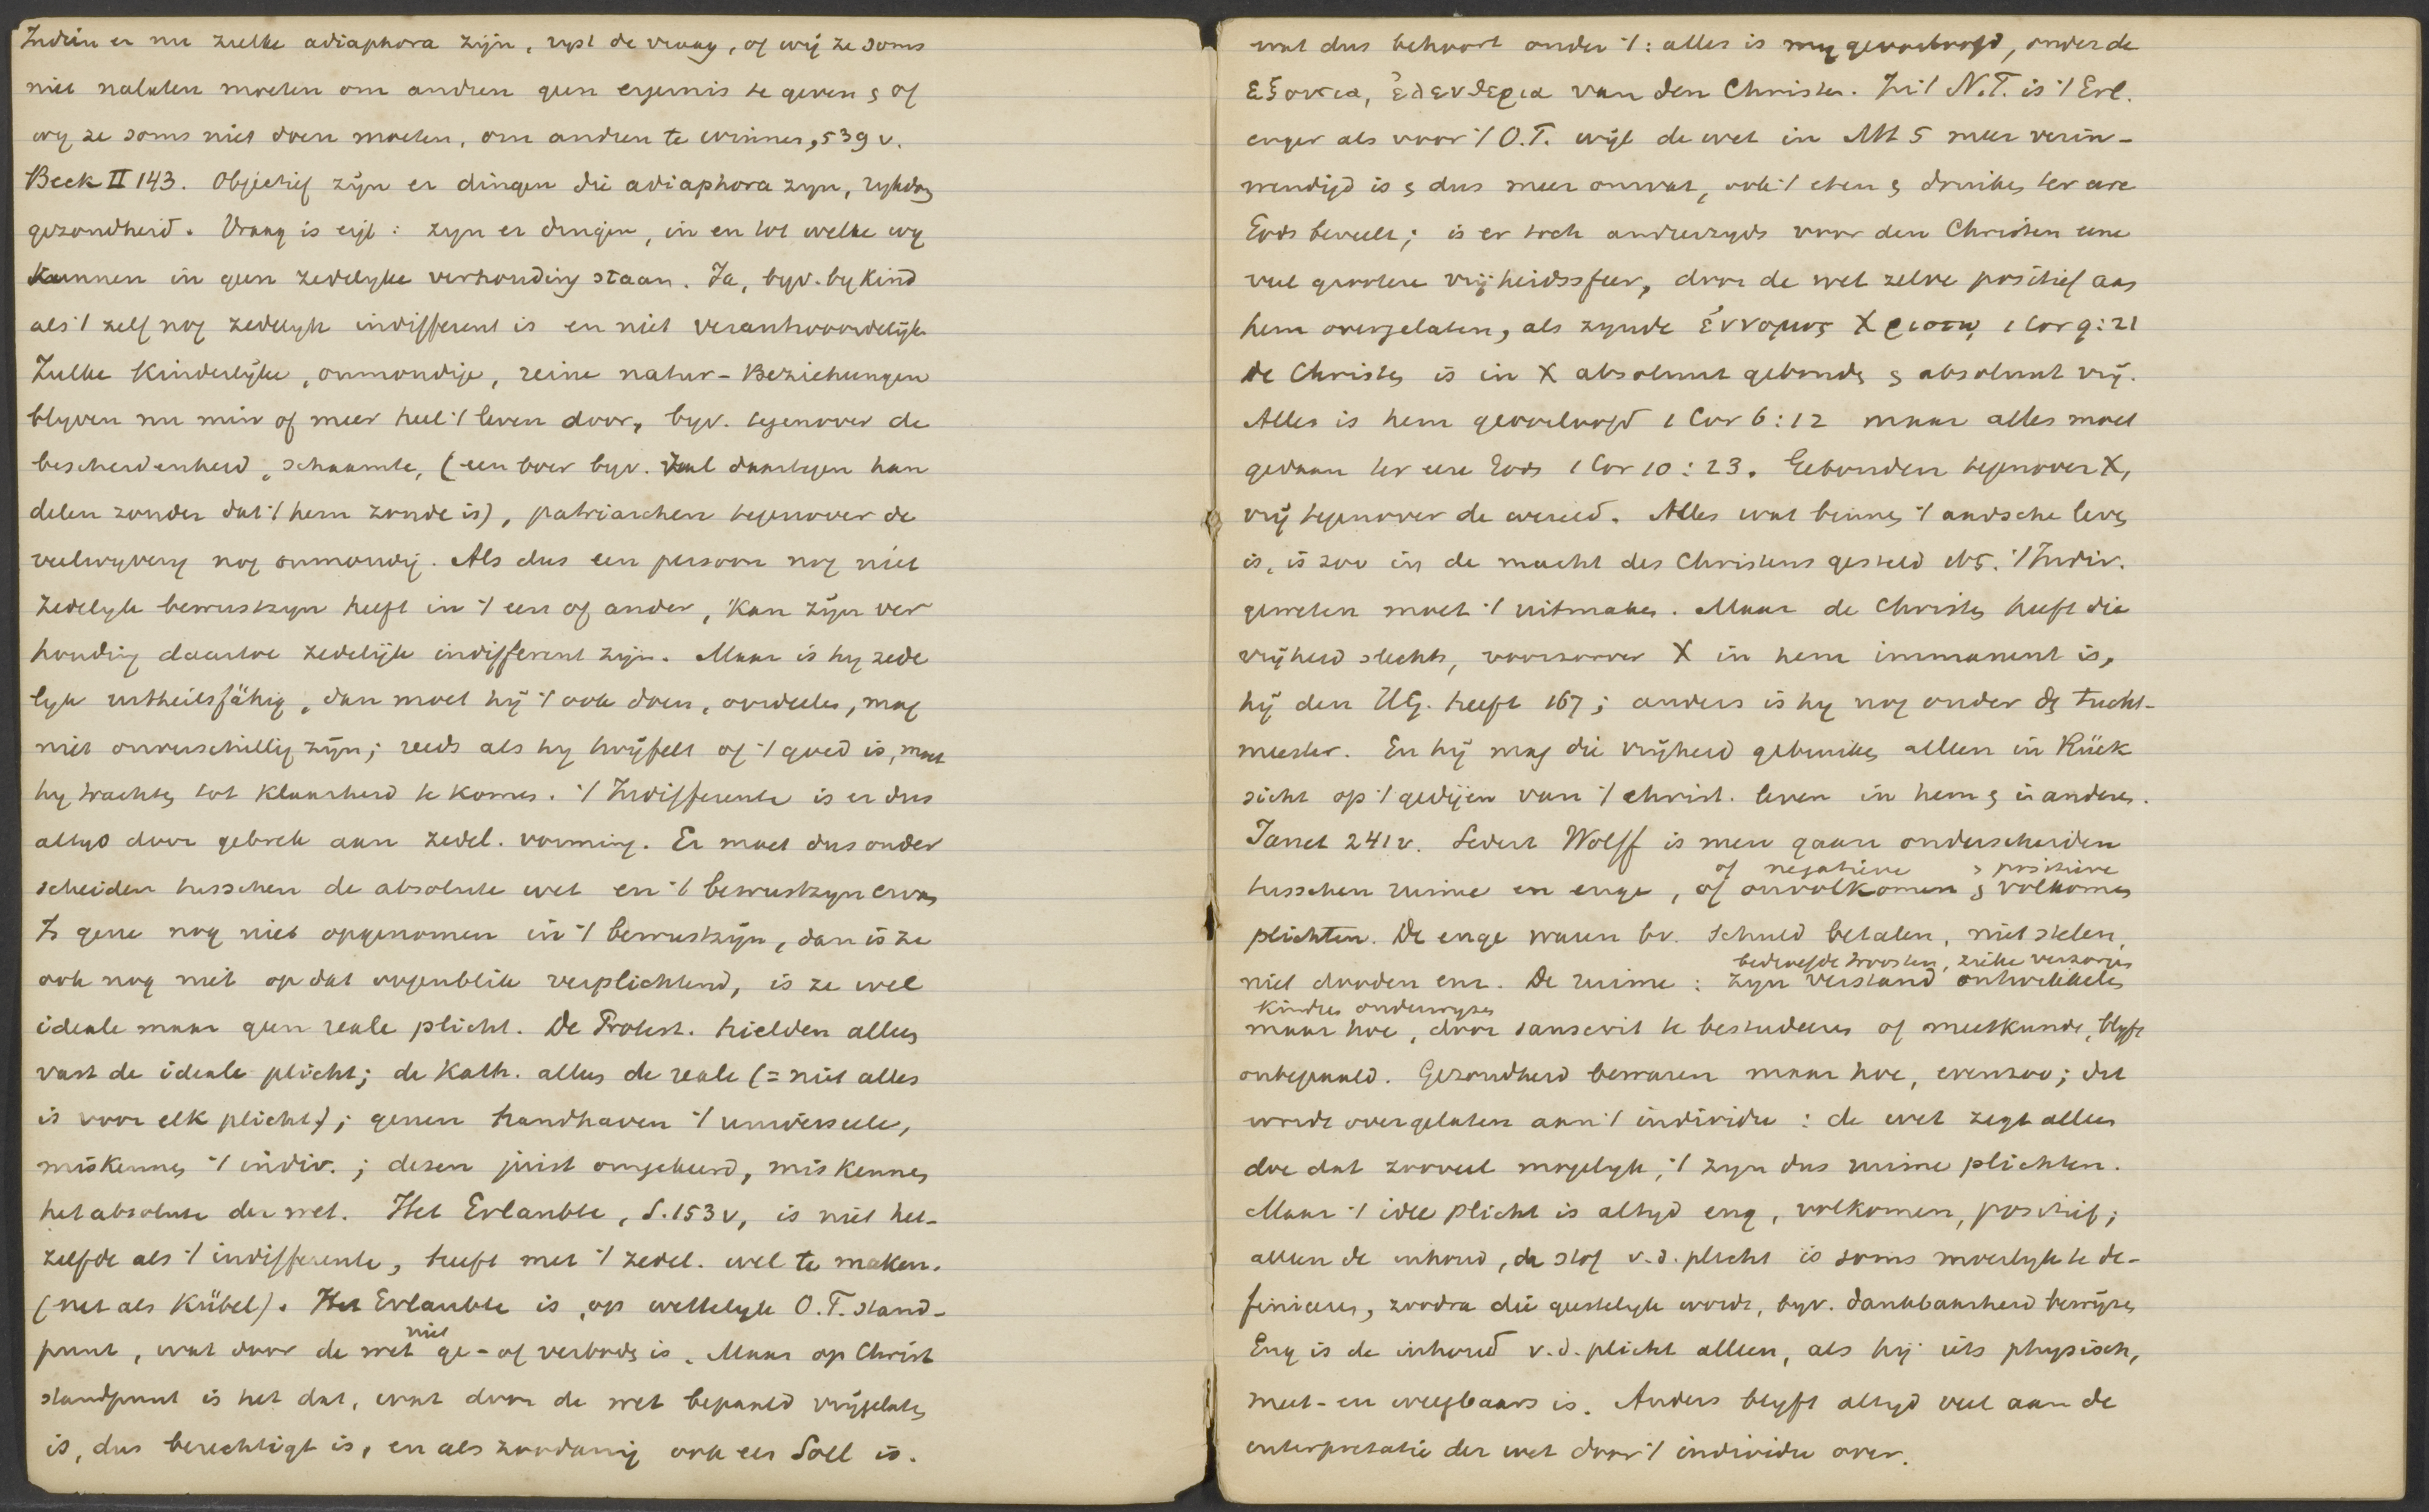 Indien er nu zulke adiaphora zijn, rijst de vraag, of wij ze soms
niet nalaten moeten om andren geen ergernis te geven & of
wy ze soms niet doen moeten, om andren te winnen, 539 v.
Beck II 143. Objectief zijn er dingen die adiaphora zyn, rykdom
gezondheid. Vraag is eigl : zyn er dingen, in en tot welke wy
kunnen in geen zedelyke verhouding staan. Ja, byv. by kind
als 't zelf nog zedelyk indifferent is en niet verantwoordelijk
Zulke kinderlijke, onmondige, reine natur-Beziehungen
blyven nu min of meer heel 't leven door, byv. tegenover de
bescheidenheid, schaamte, (een boer byv. zal daartegen han
delen zonder dat 't hem zonde is), patriarchen tegenover de
veelwyvery nog onmondig. Als dus een persoon nog niet
zedelyk bewustzyn heeft in 't een of ander, kan zijn ver
houding daartoe zedelijk indifferent zijn. Maar is hy zede
lyk urtheilsfähig, dan moet hij 't ook doen, oordeelen, mag
niet onverschillig zijn; reeds als hy twijfelt of 't goed is, moet
hy trachten tot klaarheid te komen. 't Indifferente is er dus
altyd door gebrek aan zedel. vorming. Er moet dus onder
scheiden tusschen de absolute wet en 't bewustzyn ervan
Is gene nog niet opgenomen in 't bewustzijn, dan is ze
ook nog niet op dat oogenblik verplichtend, is ze wel
ideale maar geen reale plicht. De Protest. hielden alleen
vast de ideale plicht; de Kath. alleen de reale (= niet alles
is voor elk plicht); genen handhaven 't universeele,
miskennen 't indiv. ; dezen juist omgekeerd, miskennen
het absolute der wet. Het Erlaubte, S. 153 v, is niet het-
zelfde als 't indifferente, heeft met 't zedel. wel te maken.
(net als Kübel). Het Erlaubte is, op wettelyk O.T. stand-
punt, wat door de wet niet ge- of verboden is. Maar op Christ
standpunt is het dat, wat door de wet bepaald vrijgelaten
is, dus berechtigt is, en als zoodanig ook een Soll is.
wat dus behoort onder 't : alles is my geoorloofd, onder de
εξουσια, ἐλευθερια van den Christen. In 't N.T. is 't Erl.
enger als voor 't O.T. wijl de wet in Mt 5 meer verin-
wendigd is & dus meer omvat, ook 't eten & drinken ter eere
Gods beveelt; is er toch anderzyds voor den Christen eene
veel grootere vrijheidssfeer, door de wet zelve positief aan
hem overgelaten, als zynde ἐννομος Χριστῳ, 1 Cor 9:21
de Christen is in X absoluut gebonden & absoluut vrij.
Alles is hem geoorloofd 1 Cor 6:12 maar alles moet
gedaan ter eere Gods 1 Cor 10:23. Gebonden tegenover X,
vrij tegenover de wereld. Alles wat binnen 't aardsche leven
is, is zoo in de macht des Christens gesteld 't Indiv.
geweten moet 't uitmaken. Maar de Christen heeft die
vrijheid slechts, voorzoover X in hem immanent is,
hij den HG. heeft 167; anders is hy nog onder den tucht-
meester. En hij mag die vrijheid gebruiken alleen in Rück
sicht op 't gedijen van 't christ. leven in hem & in anderen.
Janet 241 v. Sedert Wolff is men gaan onderscheiden
of negatieve & positieve
tusschen ruime en enge, of onvolkomen & volkomen
plichten. De enge waren bv. schuld betalen, niet stelen,
bedroefde troosten, zieke verzorgen
niet dooden enz. De ruime : zyn verstand ontwikkelen
kindren onderwyzen
maar hoe, door sanscrit te bestudeeren of meetkunde, blyft
onbepaald. Gezondheid bewaren maar hoe, evenzoo; dit
wordt overgelaten aan 't individu : de wet zegt alleen
doe dat zooveel mogelyk, 't zyn dus ruime plichten.
Maar 't idee plicht is altyd eng, volkomen, positief;
alleen de inhoud, de stof v.d. plicht is soms moeilyk te de-
finieeren, zoodra die geestelyk wordt, byv. dankbaarheid bewijzen
Eng is de inhoud v.d. plicht alleen, als hij iets physisch,
meet- en weegbaars is. Anders blyft altyd veel aan de
interpretatie der wet door 't individu over.